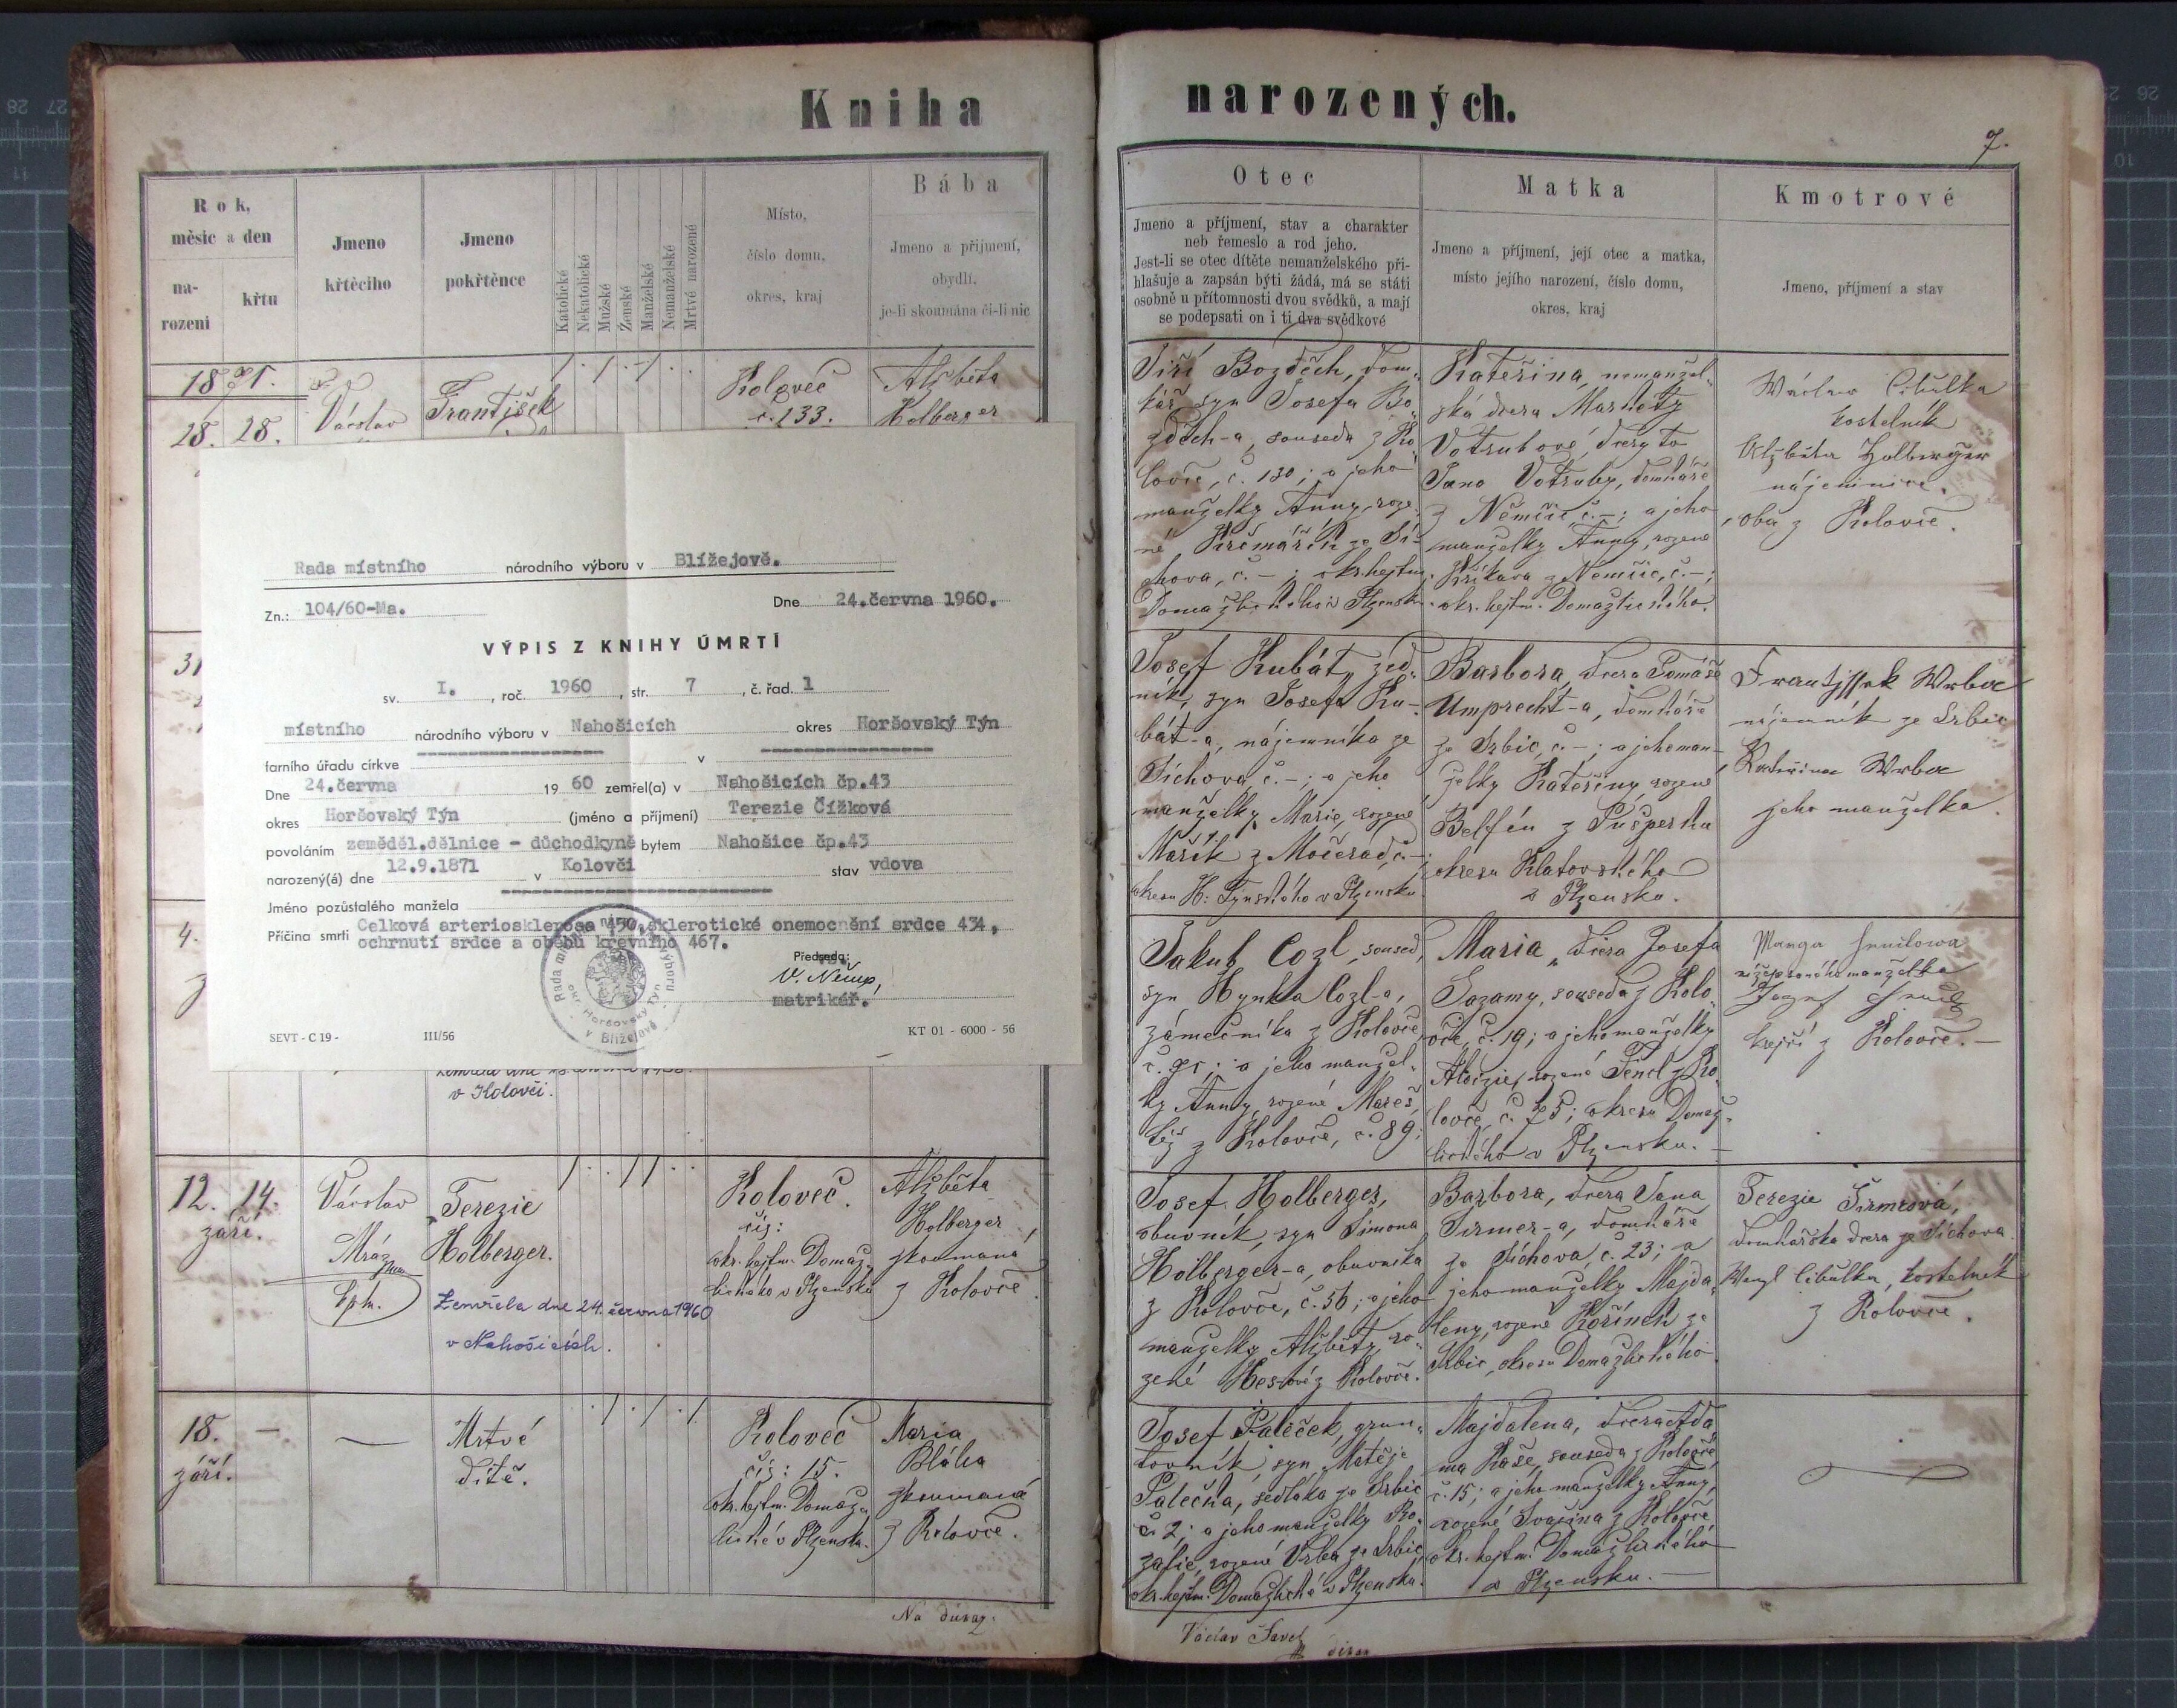 Kniha
Rok,
měsic a den
na-
rozeni
křtu
Jmeno
křtěciho
Jmeno
pokřtěnce
Katolické
Nekatolické
Mužské
Ženské
Manželské
Nemanželské
Mrtvé narozené
Místo,
číslo domu,
okres, kraj
Bába
Jmeno a přijmení,
obydlí,
je-li skoumána či-li nic
1871.
28. 28.
Václav
František
Koloveč
č. 133.
Alžběta
Holberger
31
4.
Rada místního národního výboru v Blížejově.
Zn.: 104/60-Ma.
Dne 24.června 1960.
VÝPIS Z KNIHY ÚMRTÍ
sv. I. , roč. 1960 , str. 7 , č. řad. 1
místního národního výboru v Nahošicích okres Horšovský Týn
farního úřadu církve v
Dne 24.června 1960 zemřel(a) v Nahošicích čp.43
okres Horšovský Týn (jméno a příjmení) Terezie Čížková
povoláním zeměděl.dělnice - důchodkyně bytem Nahošice čp.43
narozený(á) dne 12.9.1871 v Kolovči stav vdova
Jméno pozůstalého manžela
Příčina smrti Celková arteriosklerosa 450, sklerotické onemocnění srdce 434,
ochrnutí srdce a oběhu krevního 467.
Předseda:
V. Němp,
matrikář.
SEVT - C 19 - III/56 KT 01 - 6000 - 56
v Kolovči.
12. 14.
září.
Václav
Mráz
kpln.
Terezie
Holberger.
Zemřela dne 24. června 1960
v Nahošicích.
Koloveč.
čís:
okr. hejtm. Domaž-
lického v Plzensku
Alžběta
Holberger,
zkoumaná
z Kolovče.
18. —
září.
—
Mrtvé
dítě.
Koloveč
čís: 15.
okr. hejtm. Domaž-
lické v Plzensk.
Maria
Bláha
zkoumaná
z Kolovče.
Na důkaz:
narozených.
7.
Otec
Jmeno a příjmení, stav a charakter
neb řemeslo a rod jeho.
Jest-li se otec dítěte nemanželského při-
hlašuje a zapsán býti žádá, má se státi
osobně u přítomnosti dvou svědků, a mají
se podepsati on i ti dva svědkové
Matka
Jmeno a příjmení, její otec a matka,
místo jejího narození, číslo domu,
okres, kraj
Kmotrové
Jmeno, příjmení a stav
Jiří Bozděch, dom-
kář, syn Josefa Bo-
zděch-a, souseda z Ko-
lovče, č. 130; a jeho
manželky Anny, roze-
né Krčmářík ze Ši-
chova, č. –; okr. hejtm.
Domažlického v Plzensk.
Kateřina, nemanžel-
ská dcera Markéty
Votrubové, dcery to
Jana Votruby, domkáře
z Němčic č. –; a jeho
manželky Anny, rozené
Kříkava z Němčic, č. –;
okr. hejtm. Domažlického.
Wáclaw Cibulka
kostelník
Alžběta Holberger
nájemnice,
oba z Kolovče.
Josef Kubát, zed-
ník, syn Josefa Ku-
bát-a, nájemníka ze
Šíchova, č. –; a jeho
manželky Marie, rozené
Mařík z Močerad, č. –;
okresu H: Týnského v Plzensku
Barbora, dcera Tomáše
Umprecht-a, domkáře
ze Srbic, č. –; a jeho man-
želky Kateřiny, rozené
Belfín z Pušperka
okresu Klatovského
v Plzensku.
Frantjssek Wrba
nájemník ze Srbic
Kateřina Wrba
jeho manželka.
Jakub Cozl, soused,
syn Hynka Cozl-a,
zámečníka z Kolovče,
č. 95; a jeho manžel-
ky Anny, rozené Mareš,
též z Kolovče, č. 89;
Maria, dcera Josefa
Sazamy, souseda z Kolo-
vče, č. 19; a jeho manželky
Aloizie, rozené Fencl z Ko-
lovče, č. 75; okresu Domaž-
lického v Plzensku. –
níže psaného manželka
Jozef
krejčí z Kolovče. –
Josef Holberger,
obuvník, syn Šimona
Holberger-a, obuvníka
z Kolovče, č. 56; a jeho
manželky Alžběty, ro-
zené Hesové z Kolovče.
Barbora, dcera Jana
Širmer-a, domkáře
ze Šíchova, č. 23; a
jeho manželky Majda-
leny, rozené Kořínek ze
Srbic, okresu Domažlického
Terezie Širmerová,
domkářská dcera ze Šíchova.
Wacl Cibulka, kostelník
z Kolovče.
Josef Paleček, grun-
tovník, syn Matěje
Palečka, sedláka ze Srbic
č. 2; a jeho manželky Ro-
zalie, rozené Vrba ze Srbic,
okr. hejtm. Domažlické v Plzensku.
Majdalena, dcera Ada-
ma Kaše, souseda z Kolovče
č. 15; a jeho manželky Anny,
rozené Svačina z Kolovče
okr. hejtm. Domažlického
v Plzensku. –
Václav Savel